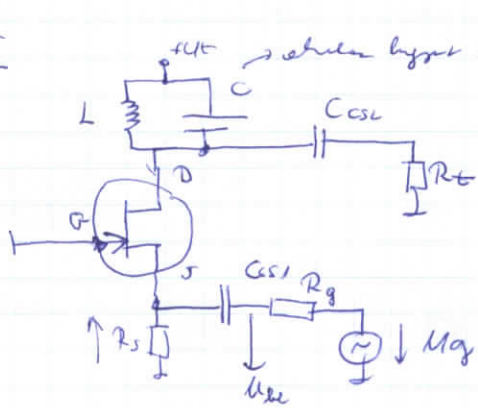 +Ut
C
L
C csL
D
Rt
G
S
Ccs1
Rg
Rs
Ube
Ug